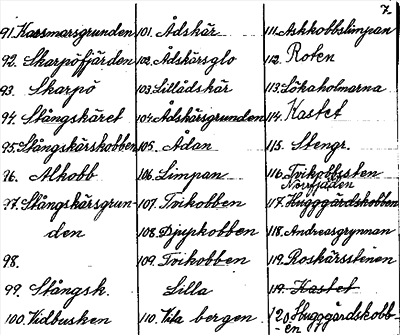 7
91. Kassmarsgrunden
92. Skarpöfjärden
93. Skarpö
94. Stångskäret
95. Stångskärskobben
96. Alkobb
97. Stångskärsgrun-
den
98.
99. Stångsk.
100. Vidbusken
101. Ådskär
102. Ådskärsglo
103. Lillådskär
104. Ådskärsgrunden
105. Ådan
106. Limpan
107. Tvikobben
108. Djupkobben
109. Tvikobben
Lilla
110. Vita bergen
111. Askkobbslimpan
112. Roten
113. Lökaholmarna
114. Kastet
115. Stengr.
116. Tvikobbssten
Norrfjäden
117. Hugggårdskobben
118. Andreasgrynnan
119. Roskärsstenen
119. Kastet
120. Huggårdskobb-
-en